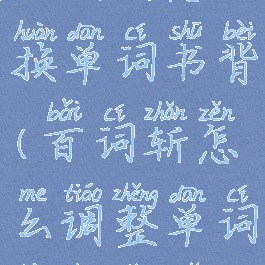 huàn dān cí shū bèi
换单词书背
bǎi cí zhǎn zěn
(百词斩怎
me tiáo zhěng dān cí
么调整单词